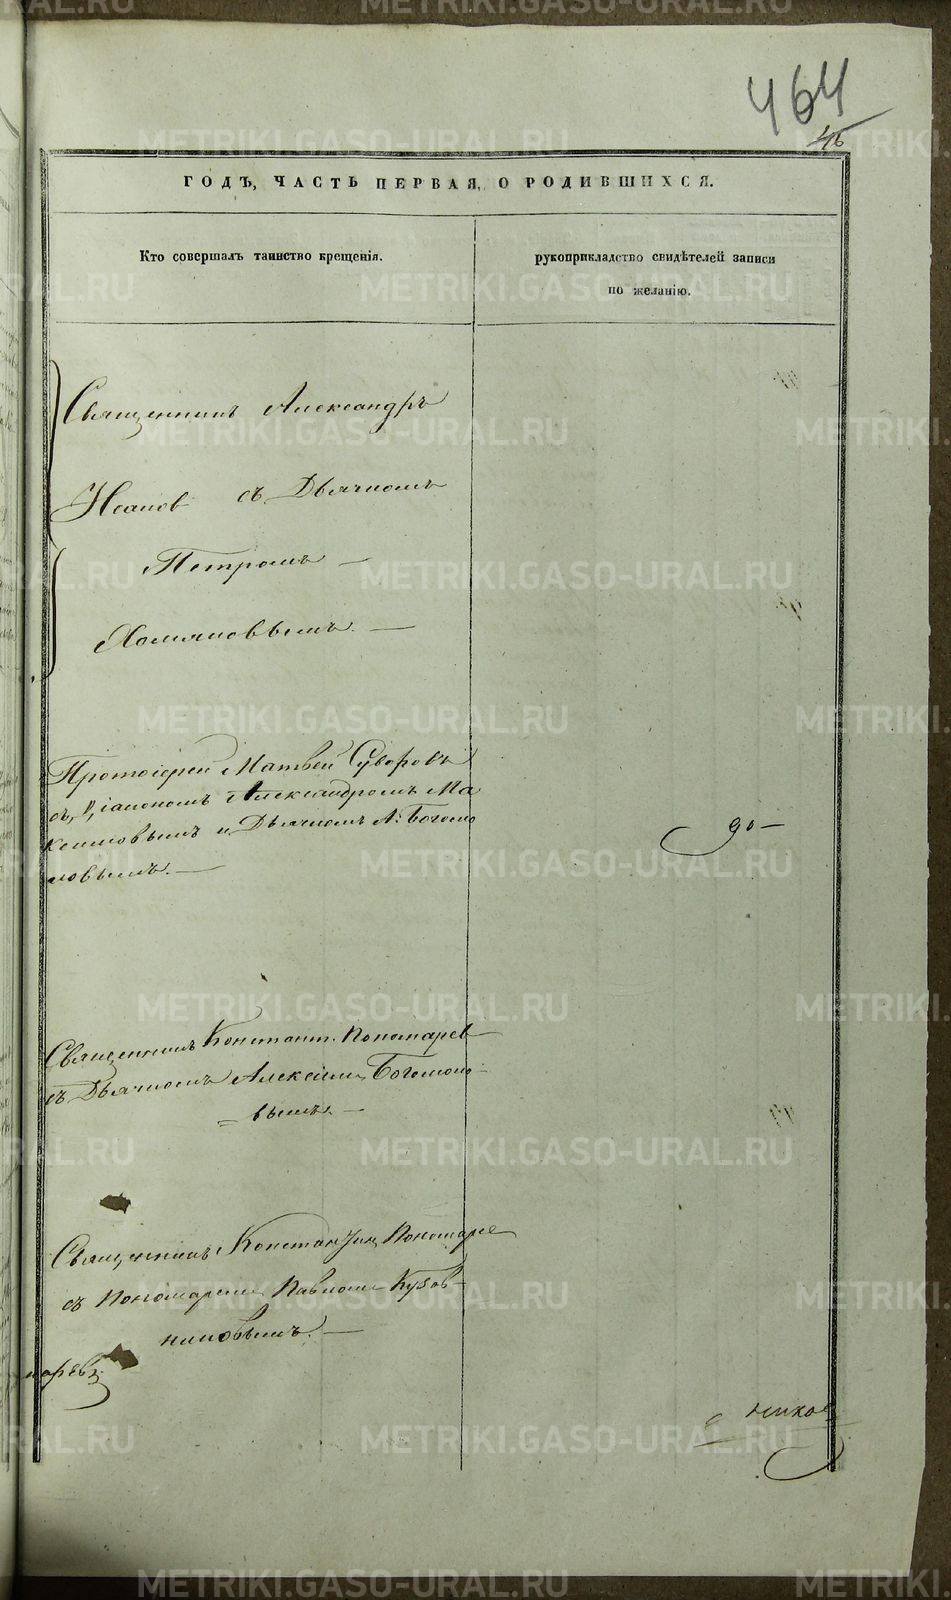 464
46
ГОДЪ, ЧАСТЬ ПЕРВАЯ, О РОДИВШИХСЯ.
Кто совершалъ таинство крещенія.
рукоприкладство свидѣтелей записи
по желанію.
Священникъ Александръ
съ Дьячкомъ
Петромъ —
Хомяковымъ. —
Протоіерей Матвей Суворовъ
съ Діакономъ Александромъ Ма
кимовымъ и Дьячкомъ А: Богомо
ловымъ. —
Священникъ Констант. Пономарев
съ Дьячкомъ Алексеем Богомоло-
= вымъ. —
Священникъ Константин Пономаре
съ Пономарем Павлом Кузов-
никовымъ. —
марев
METRIKI.GASO-URAL.RU